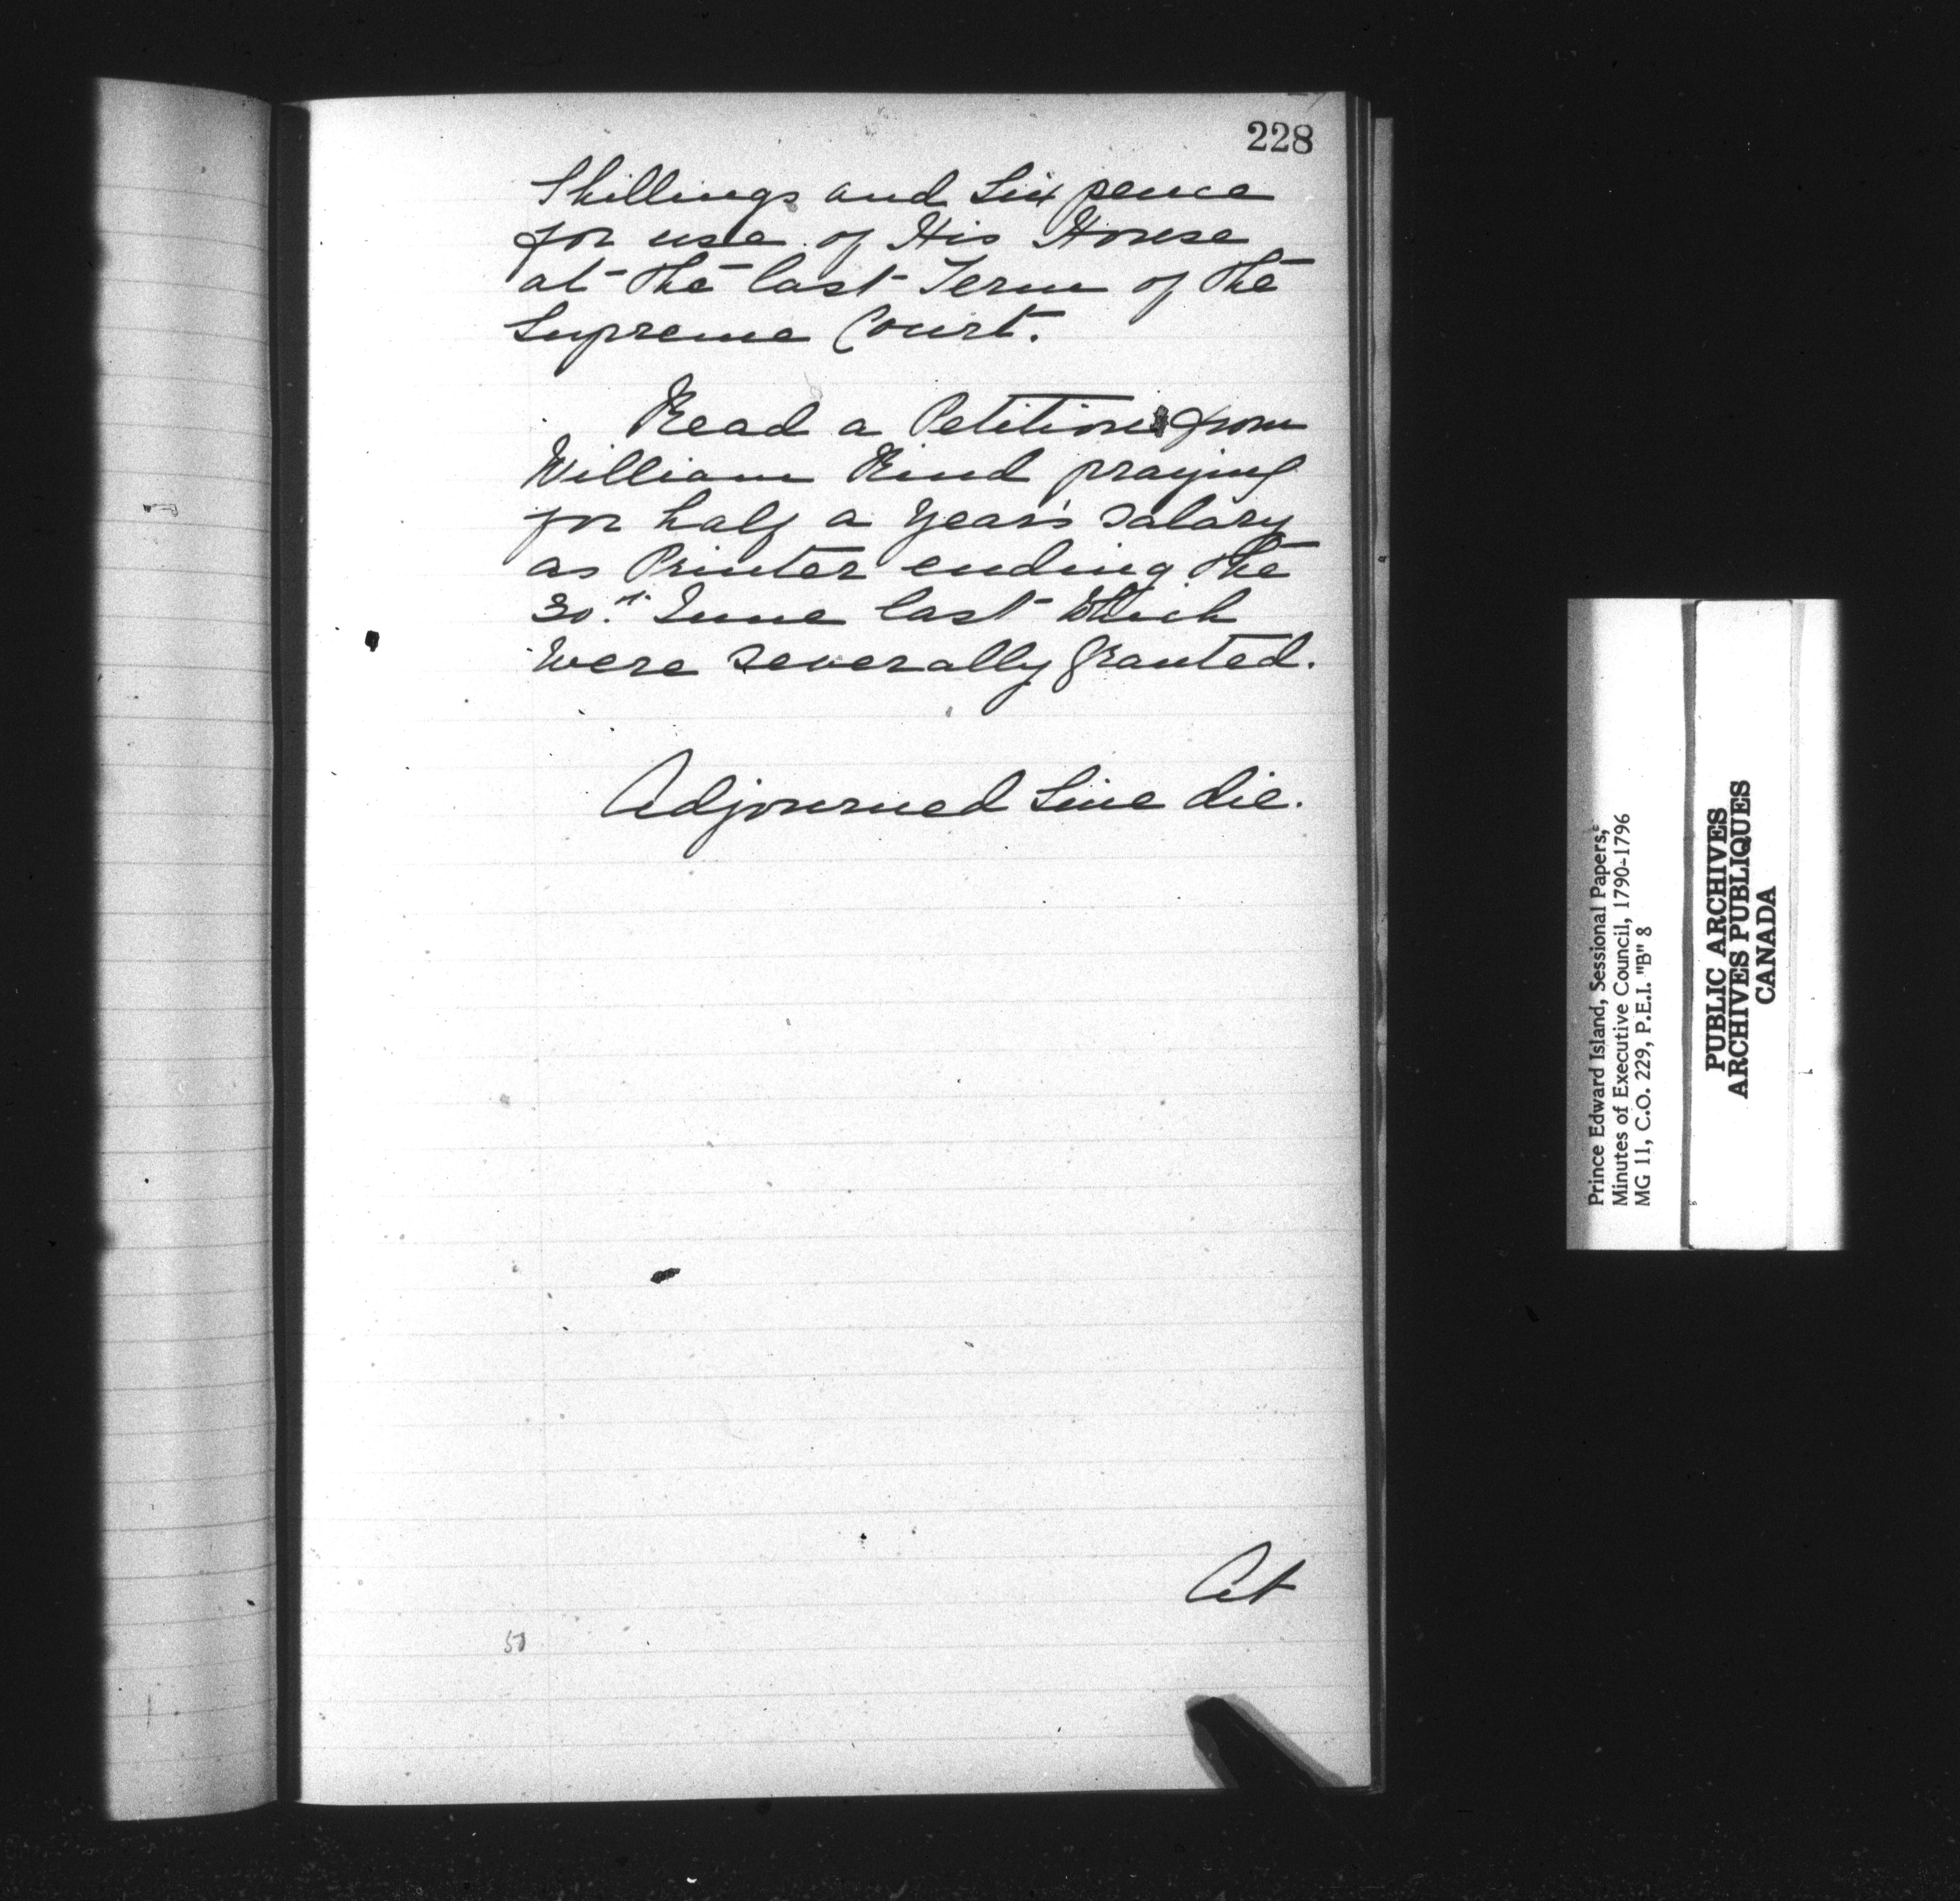 228
Shillings and Six pence
for use of His House
at the last Term of the
Supreme Court.
Read a Petition from
William Rind praying
for half a Year's Salary
as Printer ending the
30th June last Which
Were Severally Granted.
Adjourned Sine die.
At
50
Prince Edward Island, Sessional Papers,
Minutes of Executive Council, 1790-1796
MG 11, C.O. 229, P.E.I. "B" 8
PUBLIC ARCHIVES
ARCHIVES PUBLIQUES
CANADA